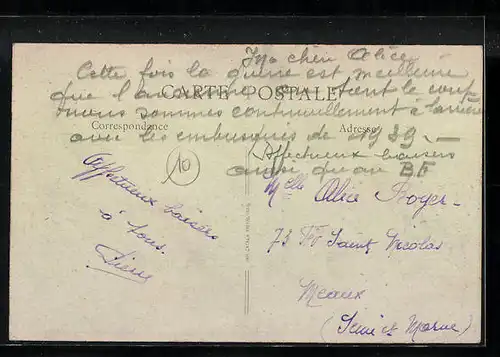 Ma chère Alice
Cette fois la guerre est meilleure
que l'an
CARTE POSTALE
nous sommes continuellement à l'arrière
Correspondance
Adresse
avec les embusqués de 1939. —
Affectueux baisers
ainsi qu'au BB
10
Affectueux baisers
à tous.
Melle Alice Boyer
73 Fg Saint Nicolas
Meaux
(Seine et Marne)